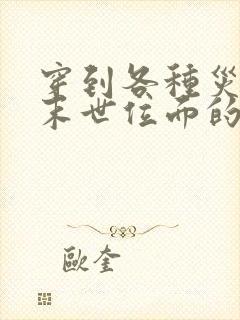 穿到各種災
末世位面的
歐奎